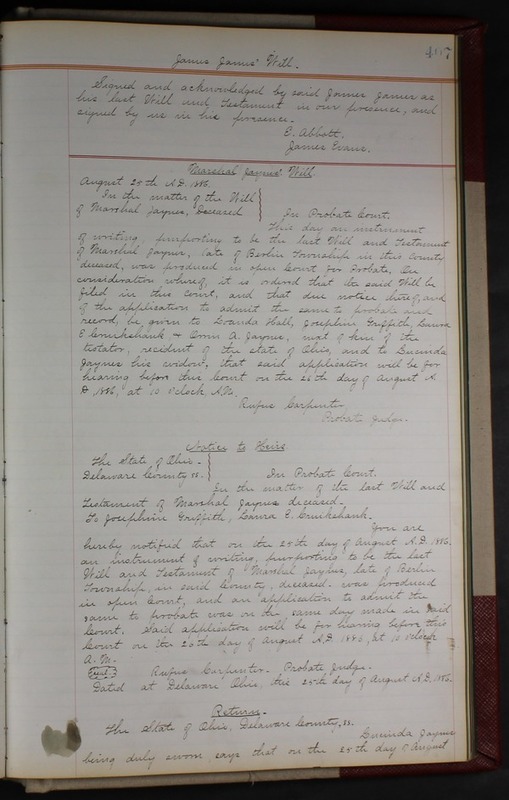 407
James James' Will.
Signed and acknowledged by said James James as
his last Will and Testament in our presence, and
signed by us in his presence.
E. Abbott.
James Evans.
Marshal Jaynes' Will.
August 25th A.D. 1886.
In the matter of the Will
of Marshal Jaynes, Deceased
In Probate Court.
This day an instrument
of writing, purporting to be the last Will and Testament
of Marshal Jaynes, late of Berlin Township in this County
deceased, was produced in open Court for Probate, On
consideration whereof, it is ordered that the said Will be
filed in this Court, and that due notice hereof, and
of the application to admit the same to probate and
record, be given to Hall, Josephine Griffith, Laura
E. Cruikshank & Orrin A. Jaynes, next of kin of the
testator, resident of the state of Ohio, and to Lucinda
Jaynes his widow, that said application will be for
hearing before this Court on the 26th day of August A.
D. 1886, at 10 o'clock, A.M.
Rufus Carpenter
Probate Judge.
Notice to Heirs
The State of Ohio.
Delaware County ss.
In Probate Court.
In the matter of the last Will and
Testament of Marshal Jaynes deceased.
To Josephine Griffith, Laura E. Cruikshank.
You are
hereby notified that on the 25th day of August A.D. 1886.
an instrument of writing, purporting to be the last
Will and Testament of Marshal Jaynes, late of Berlin
Township, in said County, deceased. was produced
in open Court, and an application to admit the
same to probate was on the same day made in said
Court. Said application will be for hearing before this
Court on the 26th day of August A.D. 1886, at 10 o'clock
A.M.
seal.
Rufus Carpenter. Probate Judge.
Dated at Delaware Ohio, this 25th day of August A.D. 1886.
Return.
The State of Ohio, Delaware County, ss.
Lucinda Jaynes
being duly sworn, says that on the 25th day of August